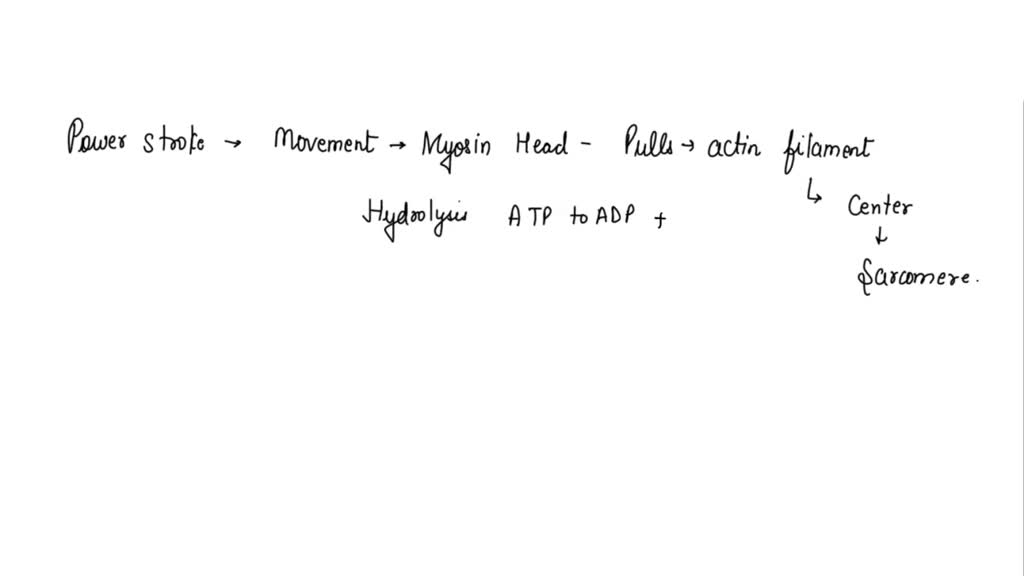 Power stroke → Movement → Myosin Head - Pulls → actin filament
↳ Center
Hydrolysis ATP to ADP +
↓
Sarcomere.